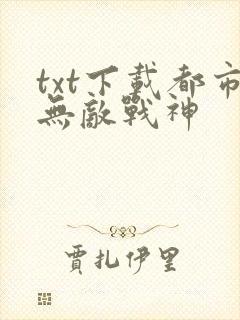 txt下載都市
無敵戰神
賈扎伊里